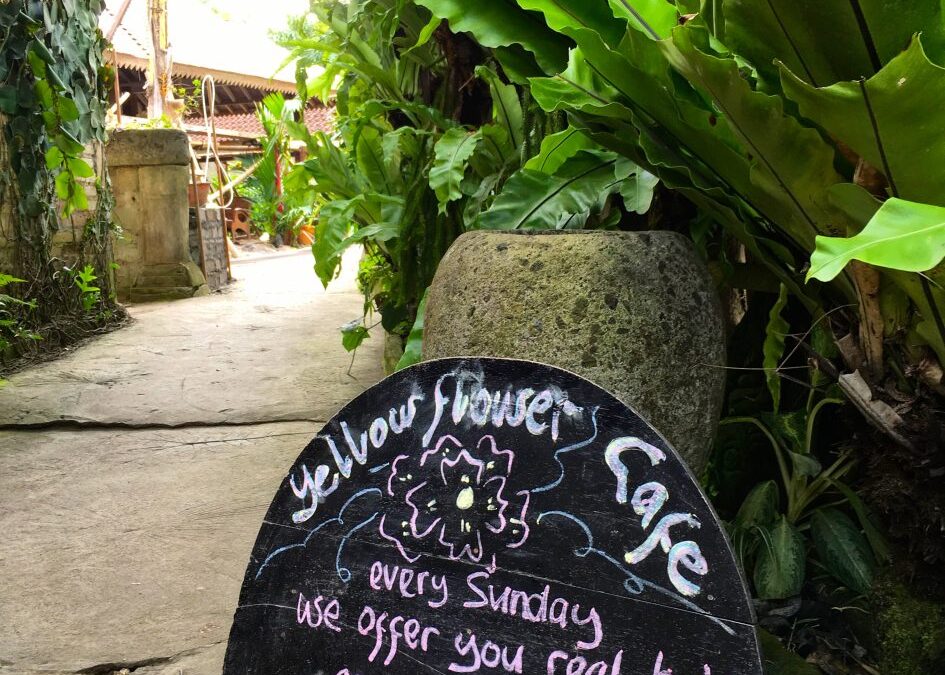 yellow flower Cafe
every Sunday
we offer you real